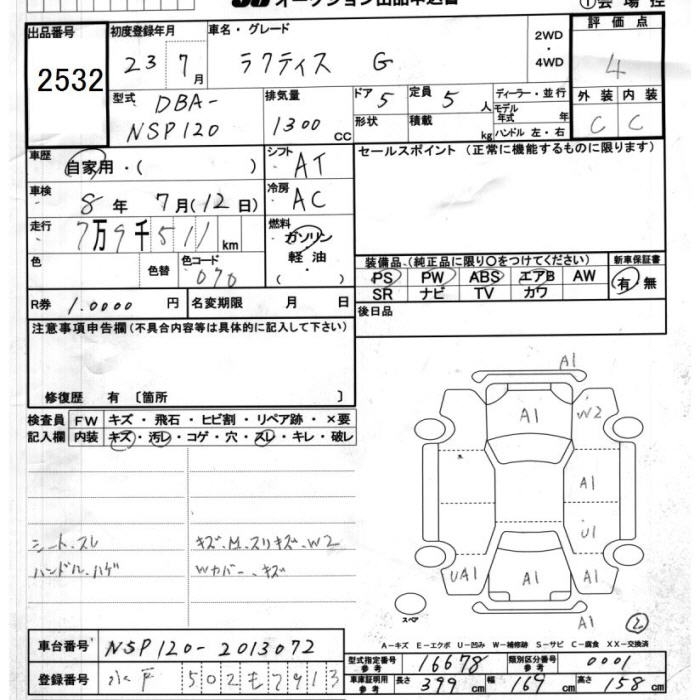 オークション出品申込書
①会場控
出品番号
2532
初度登録年月
23 7月
車名・グレード
ラクティス G
2WD
・
4WD
評価点
4
型式
DBA-
NSP120
排気量
1300 cc
ドア 5
形状
定員 5 人
積載 kg
ディーラー・並行
モデル年式 年
ハンドル 左・右
外装 内装
C C
車歴
自家用・( )
シフト
AT
セールスポイント (正常に機能するものに限ります)
車検
8年 7月(12日)
冷房
AC
走行
7万9千511 km
燃料
ガソリン
軽油
( )
色
色替
色コード
070
装備品 (純正品に限り〇をつけてください)
新車保証書
PS PW ABS エアB AW
SR ナビ TV カワ
有・無
R券 1.0000 円
名変期限 月 日
後日品
注意事項申告欄(不具合内容等は具体的に記入して下さい)
修復歴 有 〔箇所 〕
検査員
記入欄
FW キズ・飛石・ヒビ割・リペア跡・×要
内装 キズ・汚レ・コゲ・穴・スレ・キレ・破レ
シート.スレ
ハンドル.ハゲ
キズ.M.スリキズ.W2
Wカバー.キズ
A1
A1
W2
A1
U1
UA1
A1
A1
A1
スペア
②
A-キズ E-エクボ U-凹み W-補修跡 S-サビ C-腐食 XX-交換済
車台番号
NSP120-2013072
登録番号
水戸 502も7913
型式指定番号
参考
16678
類別区分番号
参考
0001
車庫証明用
参考
長さ 399 cm
幅 169 cm
高さ 158 cm